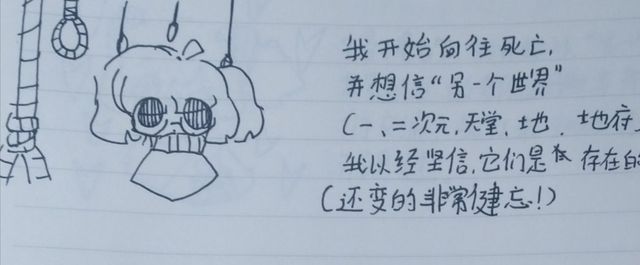 我开始向往死亡,
并想信“另一个世界”
(一、二次元,天堂,土也,土也府,
我以经坚信,它们是 存在的
(还变的非常健忘!)